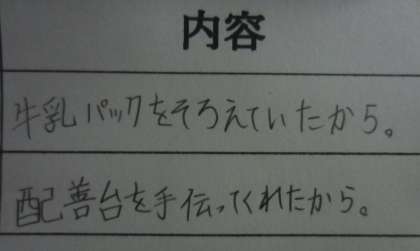 内容
牛乳パックをそろえていたから。
配善台を手伝ってくれたから。